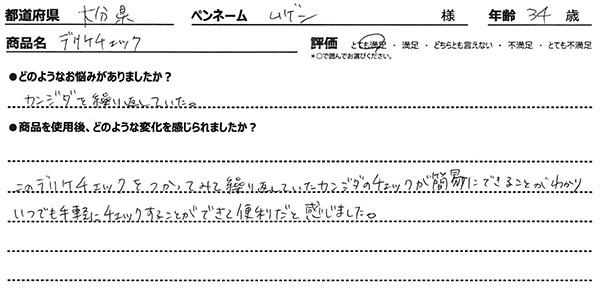 都道府県 大分県 ペンネーム ムゲン 様 年齢 34 歳
商品名 デリケチェック 評価 とても満足 ・ 満足 ・ どちらとも言えない ・ 不満足 ・ とても不満足
*○で囲んでお選びください。
●どのようなお悩みがありましたか？
カンジダを繰り返していた。
●商品を使用後、どのような変化を感じられましたか？
このデリケチェックをつかってみて繰り返していたカンジダのチェックが簡易にできることがわかり
いつでも手軽にチェックすることができて便利だと感じました。